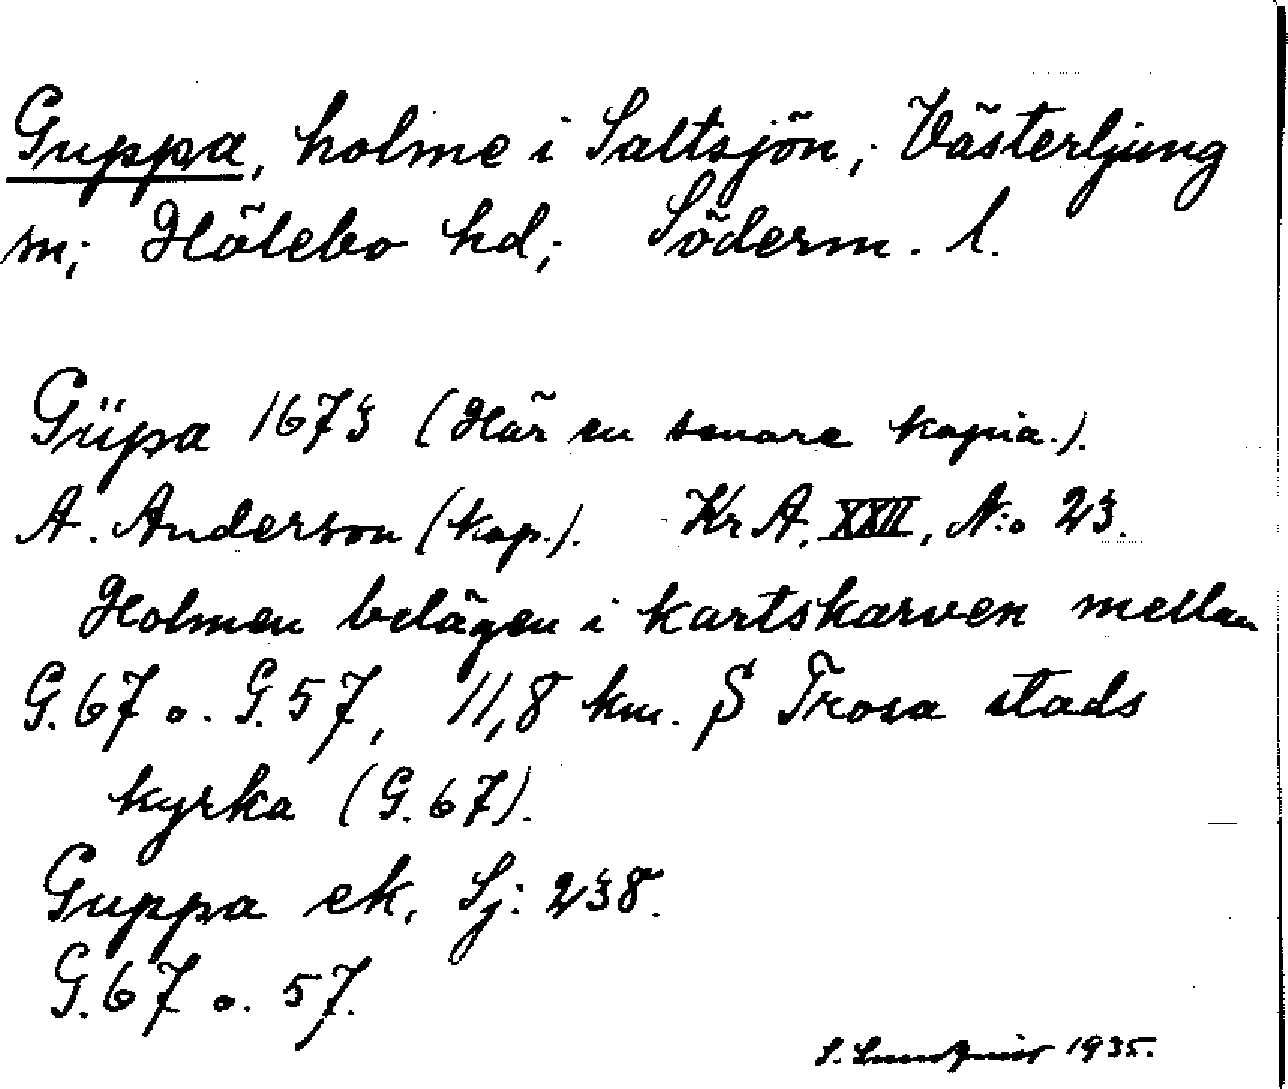 Guppa, holme i Saltsjön; Västerljung
sn; Hölebo hd; Söderm. l.
Güpa 1673 (Här en senare kopia.).
A. Anderson (kop.). Kr A. XXII, N:o 23.
Holmen belägen i kartskarven mellan
G. 67 o. G. 57, 11,8 km. S Trosa stads
kyrka (G. 67).
Guppa ek. Sj: 238.
G. 67 o. 57.
S. Lundquist 1935.